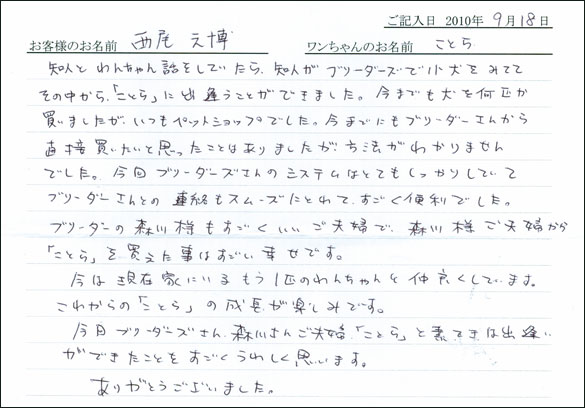 ご記入日 2010年 9月18日
お客様のお名前 西尾 元博 ワンちゃんのお名前 ことら
知人とわんちゃん話をしていたら、知人がブリーダーズで小犬をみてて
その中から、「ことら」に出逢うことができました。今までも犬を何匹か
買いましたが、いつもペットショップでした。今までにもブリーダーさんから
直接買いたいと思ったことはありましたが方法がわかりません
でした。今回ブリーダーズさんのシステムはとてもしっかりしていて
ブリーダーさんとの連絡もスムーズにとれて、すごく便利でした。
ブリーダーの森川様もすごくいいご夫婦で、森川様ご夫婦から
「ことら」を買えた事はすごい幸せです。
今は現在家にいるもう1匹のわんちゃんと仲良くしています。
これからの「ことら」の成長が楽しみです。
今回ブリーダーズさん、森川さんご夫婦、「ことら」と素てきな出逢い
ができたことをすごくうれしく思います。
ありがとうございました。